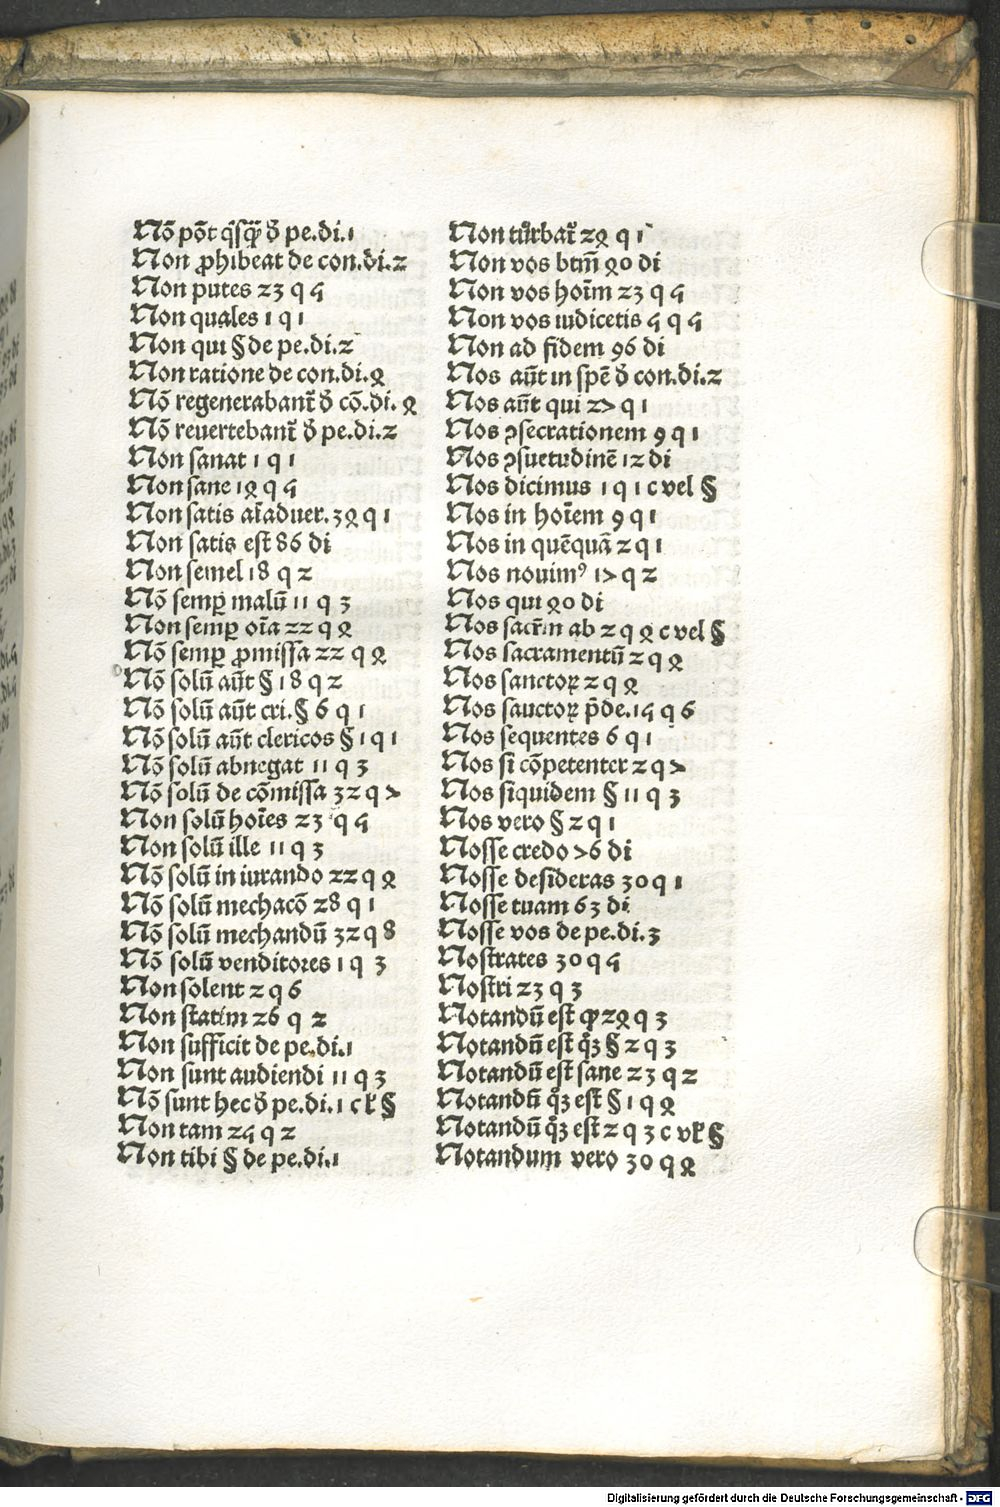 Nō pōt q̄sq̄ꝫ ð pe.di.1
Non ꝓhibeat de con.di.2
Non putes 23 q 5
Non quales 1 q 1
Non qui § de pe.di.2
Non ratione de con.di.4
Nō regenerabant̄ ð cō.di. 4
Nō reuertebant̄ ð pe.di.2
Non sanat 1 q 1
Non sane 14 q 5
Non satis aīaduer. 34 q 1
Non satis est 86 di
Non semel 18 q 2
Nō semꝑ malū 11 q 3
Non semꝑ oīa 22 q 4
Nō semꝑ ꝓmissa 22 q 4
Nō solū aūt § 18 q 2
Nō solū aūt cri. § 6 q 1
Nō solū aūt clericos § 1 q 1
Nō solū abnegat 11 q 3
Nō solū de cōmissa 32 q 7
Non solū hoīes 23 q 5
Non solū ille 11 q 3
Nō solū in iurando 22 q 4
Nō solū mechacō 28 q 1
Nō solū mechandū 32 q 8
Nō solū venditores 1 q 3
Non solent 2 q 6
Non statim 26 q 2
Non sufficit de pe.di.1
Non sunt audiendi 11 q 3
Nō sunt hec ð pe.di.1 c ꝟl §
Non tam 25 q 2
Non tibi § de pe.di.1
Non turbat̄ 24 q 1
Non vos btm̄ 40 di
Non vos hoīm 23 q 5
Non vos iudicetis 5 q 5
Non ad fidem 96 di
Nos aūt in spē ð con.di.2
Nos aūt qui 27 q 1
Nos ꝯsecrationem 9 q 1
Nos ꝯsuetudinē 12 di
Nos dicimus 1 q 1 c vel §
Nos in hoīem 9 q 1
Nos in quēquā 2 q 1
Nos nouimꝰ 17 q 2
Nos qui 40 di
Nos sacr̄m ab 2 q 4 c vel §
Nos sacramentū 2 q 4
Nos sanctoꝝ 2 q 4
Nos sauctoꝝ p̄de.15 q 6
Nos sequentes 6 q 1
Nos si cōpetenter 2 q 7
Nos siquidem § 11 q 3
Nos vero § 2 q 1
Nosse credo 76 di
Nosse desideras 30 q 1
Nosse tuam 63 di
Nosse vos de pe.di.3
Nostrates 30 q 5
Nostri 23 q 3
Notandū est ꝙ 24 q 3
Notandū est qͦꝫ § 2 q 3
Notandū est sane 23 q 2
Notandū qͦꝫ est § 1 q 4
Notandū qͦꝫ est 2 q 3 c vł §
Notandum vero 30 q 4
Digitalisierung gefördert durch die Deutsche Forschungsgemeinschaft - DFG